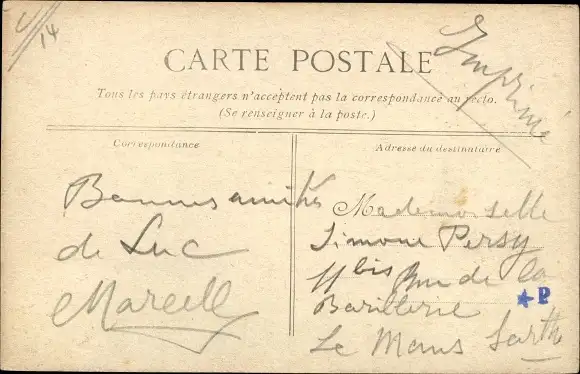 V/14
Imprimé
CARTE POSTALE
Tous les pays étrangers n'acceptent pas la correspondance au recto.
(Se renseigner à la poste.)
Correspondance
Bonnes amitiés
de Luc
Marcell
Adresse du destinataire
Mademoiselle
Simone Persy
11 bis Rue de la
Barillerie
Le Mans Sarthe
★P